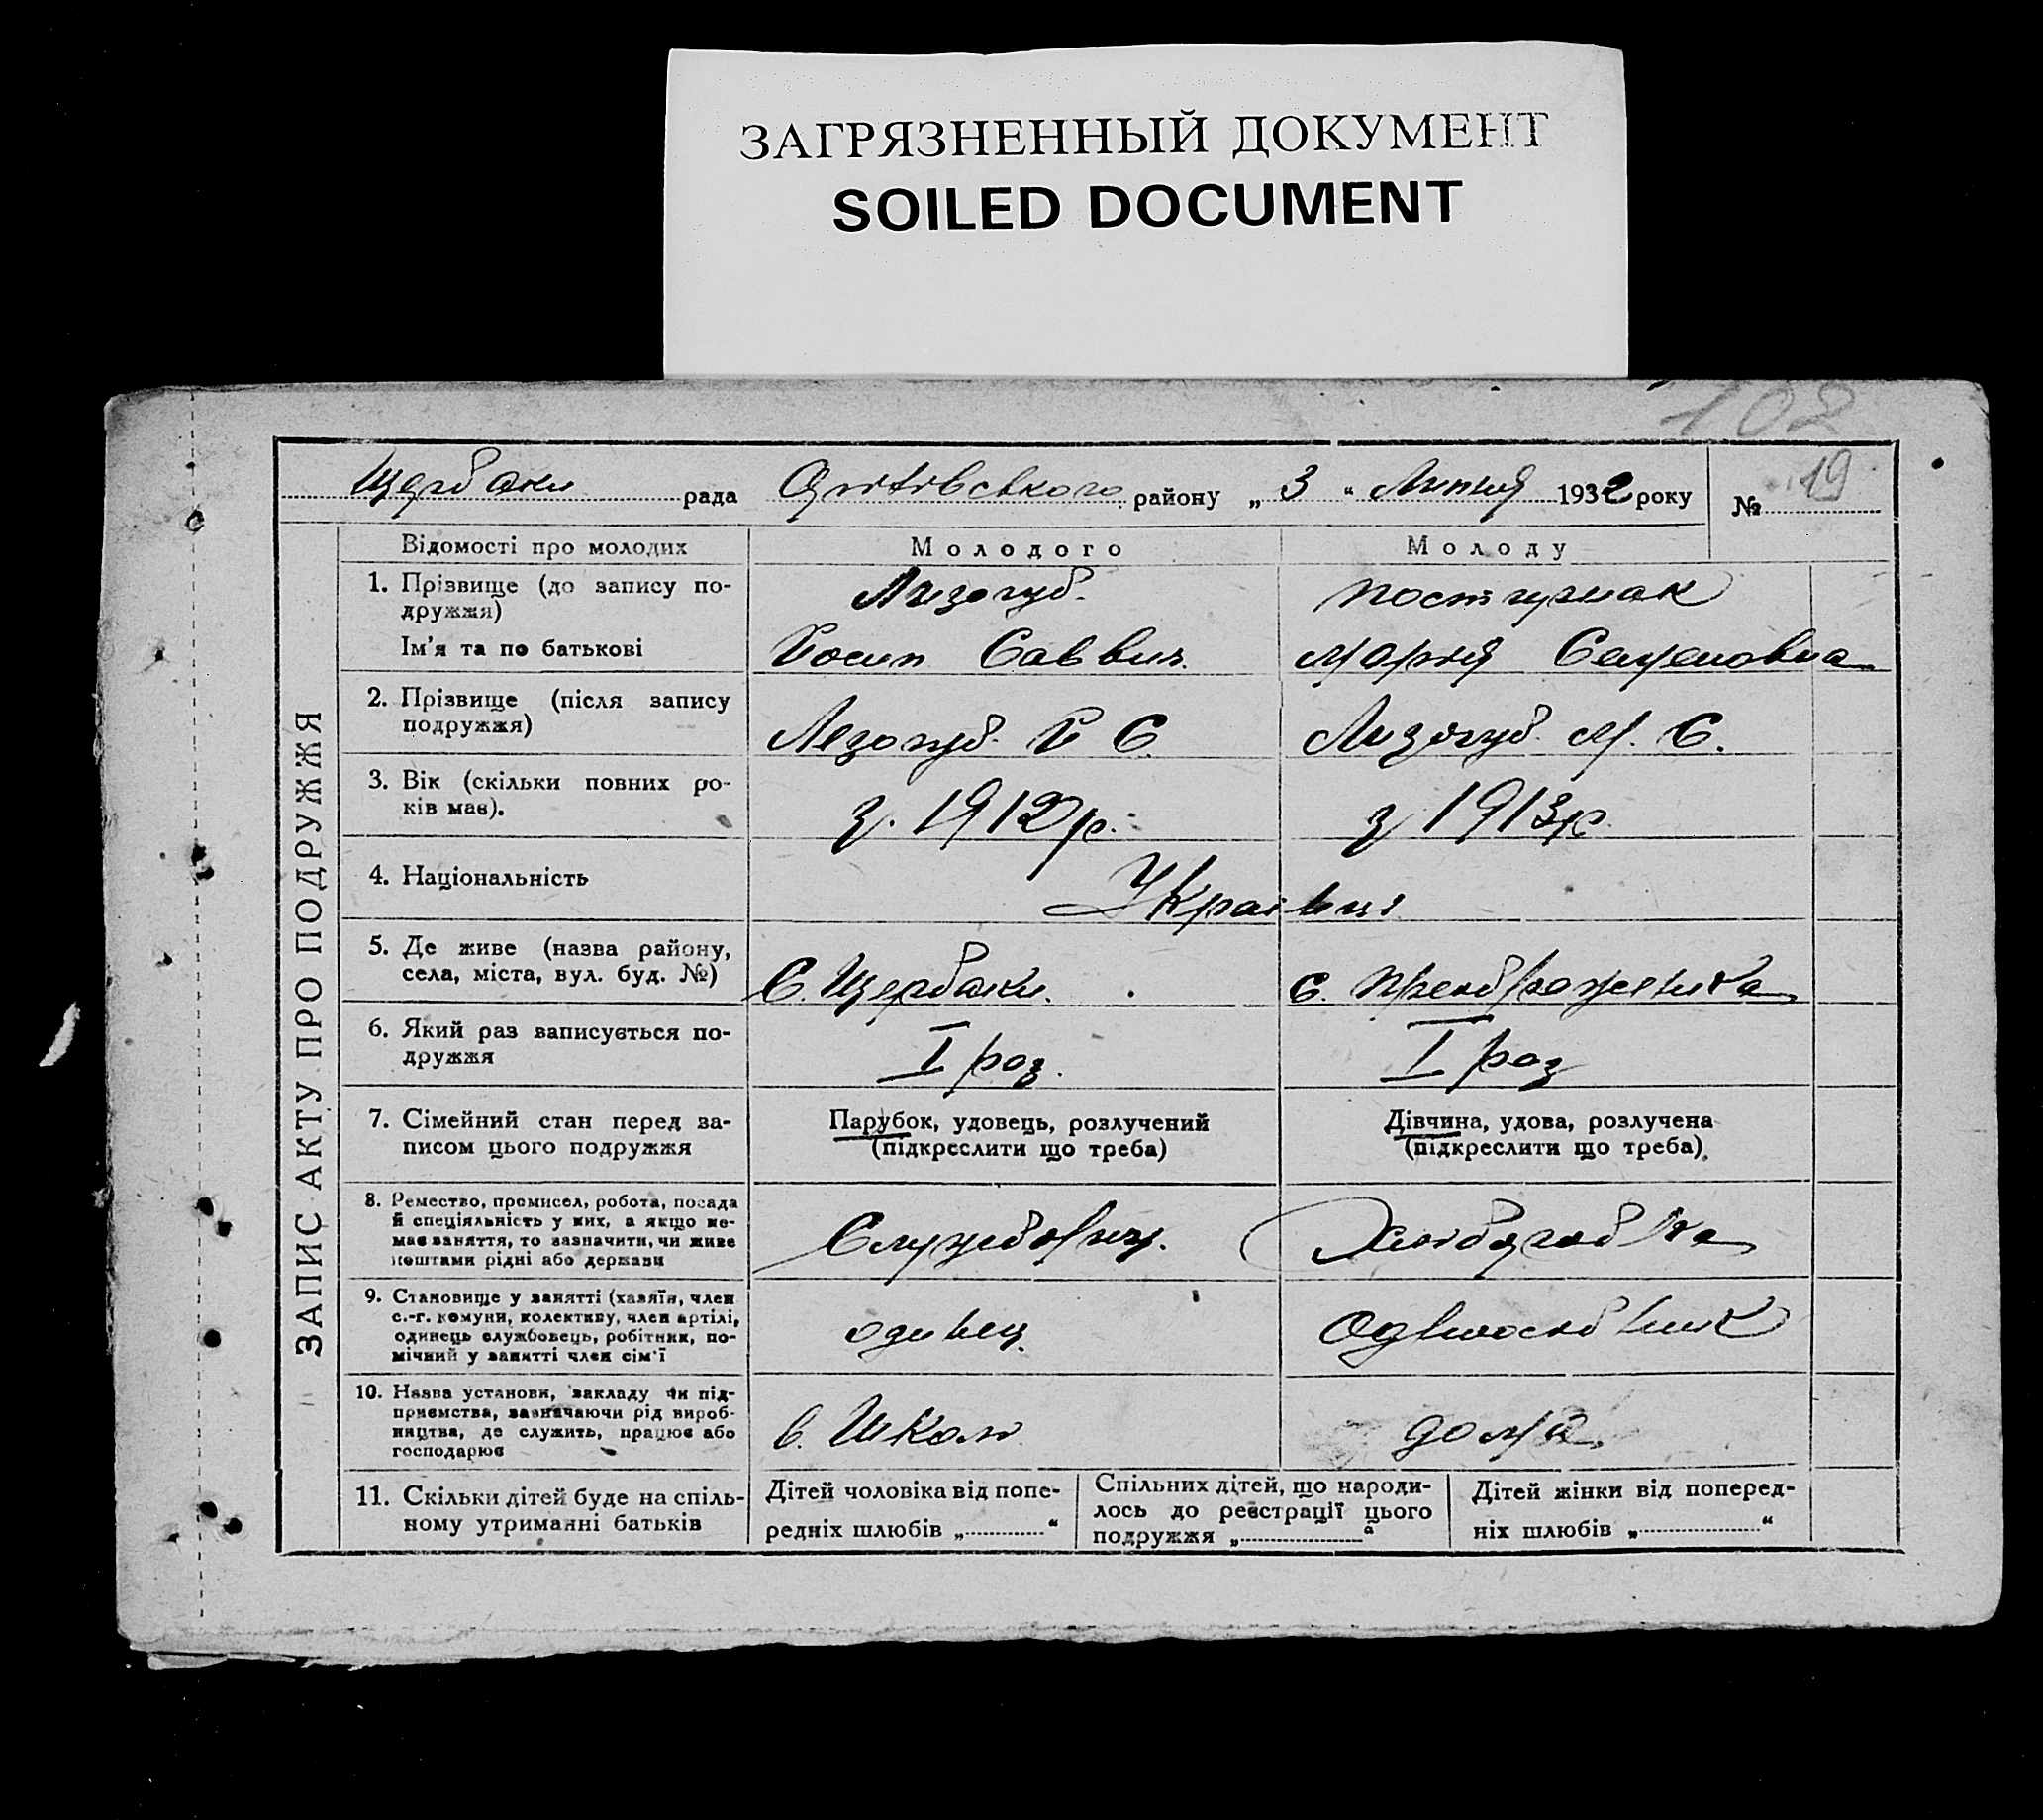 ЗАГРЯЗНЕННЫЙ ДОКУМЕНТ
SOILED DOCUMENT
102
Щербаки рада району „ 3 “ Липня 1932 року № 19
ЗАПИС АКТУ ПРО ПОДРУЖЖЯ
Відомості про молодих Молодого Молоду
1. Прізвище (до запису по-
дружжя)
Лизогуб. Постугнак
Ім'я та по батькові Йосип Саввич. Мария Семеновна
2. Прізвище (після запису
подружжя)
Лезогуб Й С. Лизогуб М. С.
3. Вік (скільки повних ро-
ків має).
з. 1912 р. з 1913 р.
4. Національність Украівці
5. Де живе (назва району,
села, міста, вул. буд. №)
С. Щербаки. с.
6. Який раз записується по-
дружжя
I раз. I раз
7. Сімейний стан перед за-
писом цього подружжя
Парубок, удовець, розлучений
(підкреслити що треба)
Дівчина, удова, розлучена
(підкреслити що треба)
8. Ремество, промисел, робота, посада
й спеціяльність у них, а якщо не-
має заняття, то зазначити, чи живе
коштами рідні або держави
Службовец.
9. Становище у занятті (хазяїн, член
с.-г. комуни, колективу, член артілі,
одинець службовець, робітник, по-
мічний у занятті член сім'ї
одинец.
10. Назва установи, закладу чи під-
приємства, зазначаючи рід вироб-
ництва, де служить, працює або
господарює
в. Школи дома
11. Скільки дітей буде на спіль-
ному утриманні батьків
Дітей чоловіка від попе-
редніх шлюбів „ “
Спільних дітей, що народи-
лось до реєстрації цього
подружжя „ “
Дітей жінки від поперед-
ніх шлюбів „ “